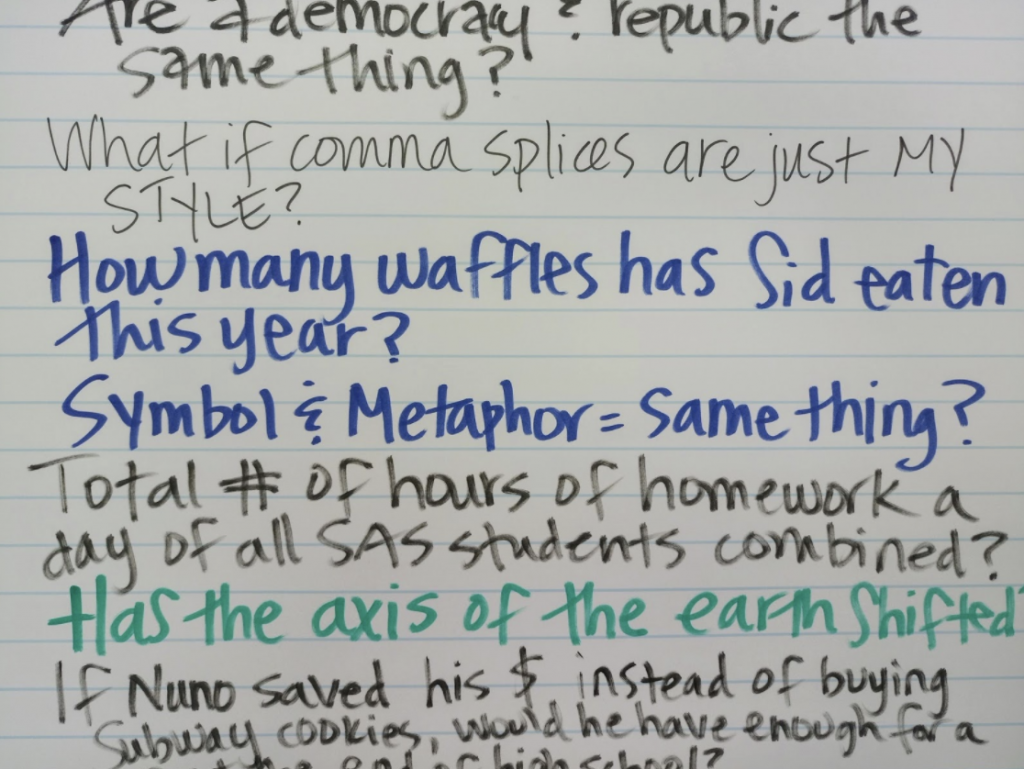 Are a democracy & republic the
same thing?
What if comma splices are just MY
STYLE?
How many waffles has Sid eaten
this year?
Symbol & Metaphor = same thing?
Total # of hours of homework a
day of all SAS students combined?
Has the axis of the earth shifted?
If Nuno saved his $ instead of buying
Subway cookies, would he have enough for a
end of high school?